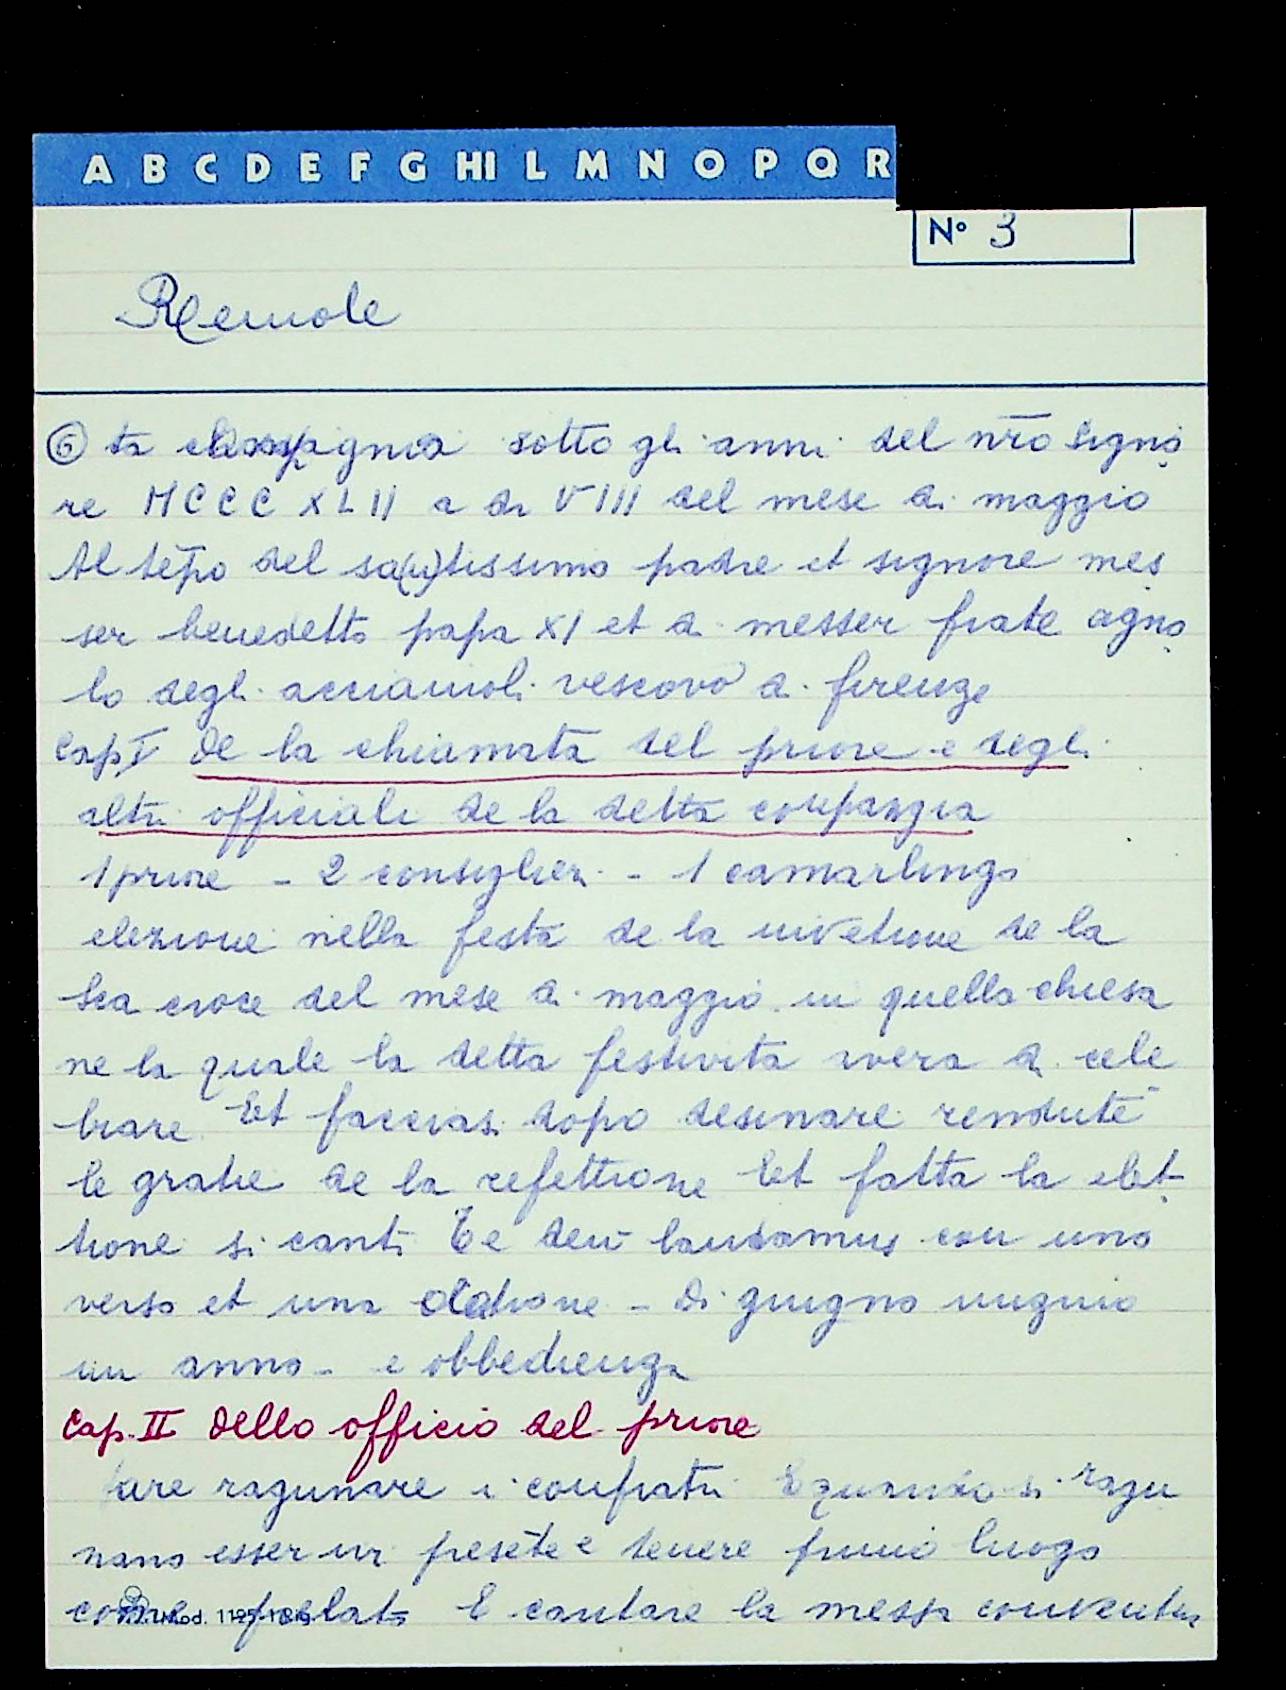 A B C D E F G HI L M N O P Q R
N° 3
Remole
⑥ ta chompagnia sotto gli anni del nr̄o Signo
re MCCCXLII a di VIII del mese di maggio
Al tēpo del sa(n)tissimo padre et signore mes
ser benedetto papa XI et di messer frate agno
lo degli acciaiuoli vescovo di firenze
Cap I de la chiamata del priore e degli
altri officiali de la detta compagnia
1 priore - 2 consiglieri - 1 camarlingo
elezione nella festa de la invētione de la
Sca croce del mese di maggio in quella chiesa
ne la quale la detta festivita avera di cele
brare Et facciasi dopo desinare rendute
le gratie de la refettione Et fatta la elet
tione si canti Te deū laudamus con uno
verso et una oratione - di giugno
un anno - e obbedienza
Cap. II dello officio del priore
fare ragunare i confrati E quando si ragu
nano esser vi presēte e tenere primo luogo
come prelato E cantare la messa
Mod. 1125